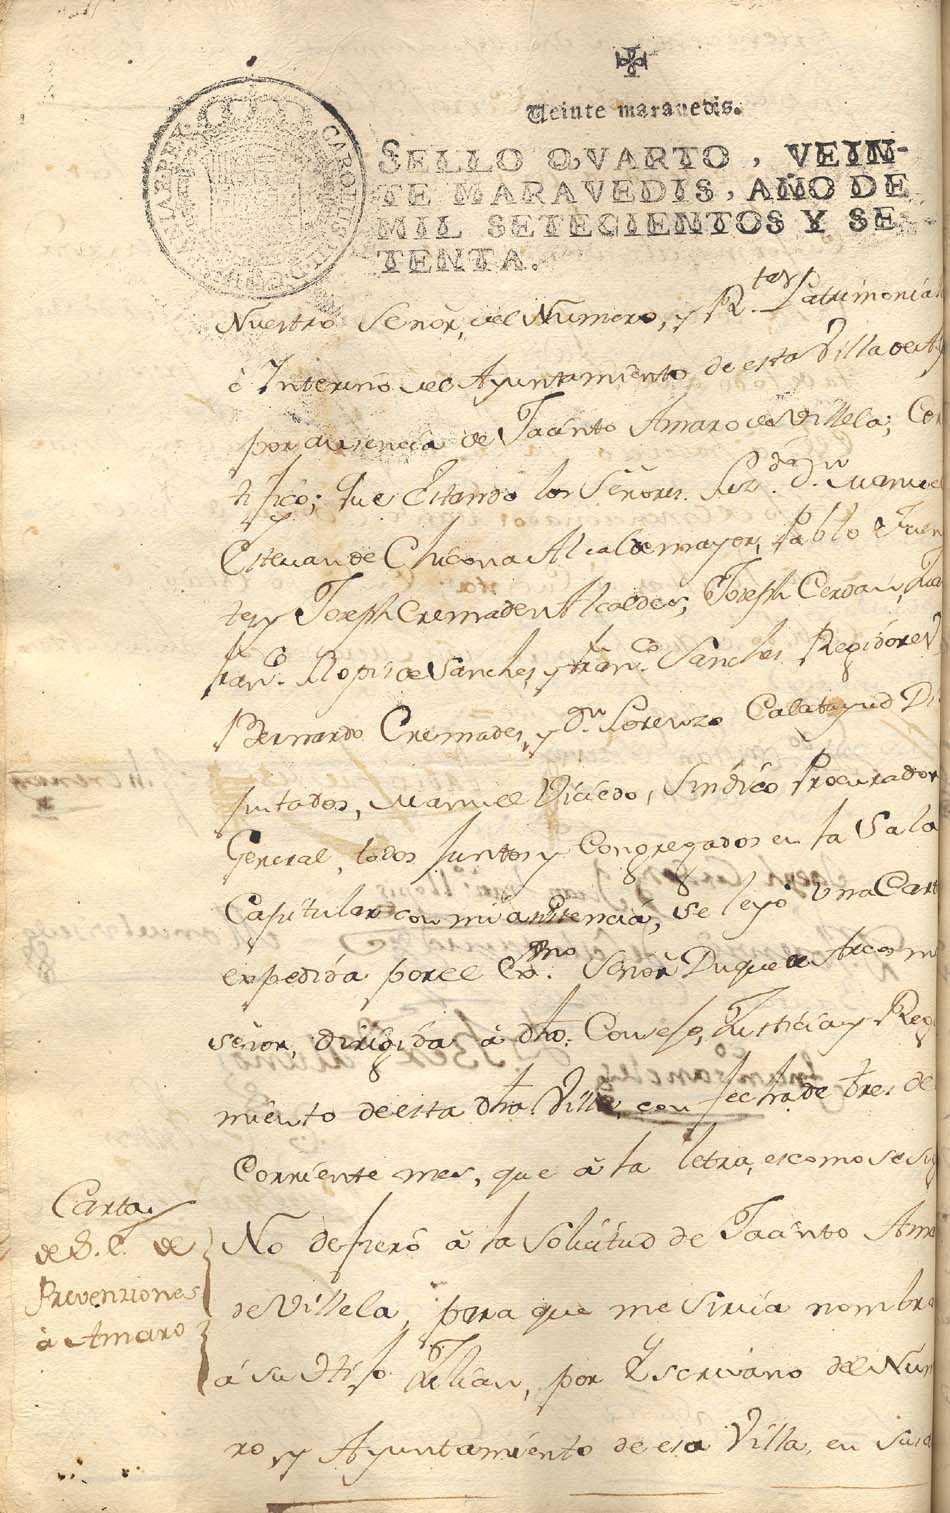 Veinte maravedis.
SELLO QVARTO, VEIN-
TE MARAVEDIS, AÑO DE
MIL SETECIENTOS Y SE-
TENTA.
CAROLUS III
Nuestro Señor, del Numero, y R.tas Patrimonia
è Interino del Ayuntamiento de esta Villa de
por ausencia de Jacinto Amaro de Villela; Cer
tifico; Que Estando los Señores Liz.do d.n Manuel
Estevan de Chicona Alcalde mayor, Pablo Fuen
tes y Joseph Cremades Alcaldes; Joseph Cerdan,
Fran.co Llopis de Sanches, y Fran.co Sanches Regidores
Bernardo Cremades, y d.n Lorenzo Calatayud Di
putados, Manuel Viciedo, Sindico Procurador
General, todos Juntos y Congregados en la Sala
Capitular con mi asistencia, se leyò una Cart
expedida por el Ex.mo Señor Duque de Arcos mi
señor, dirigida à dho. Consejo, Justicia y Regi
miento de esta dha Villa, con fecha de tres de
Corriente mes, que à la letra, es como se sig
Carta
de S. E. de
Prevenciones
à Amaro
No defierò à la Solicitud de Jacinto Ama
de Villela, para que me sirva nombra
á su Hijo Julian, por Escrivano del Num
ro, y Ayuntamiento de esa Villa, en su